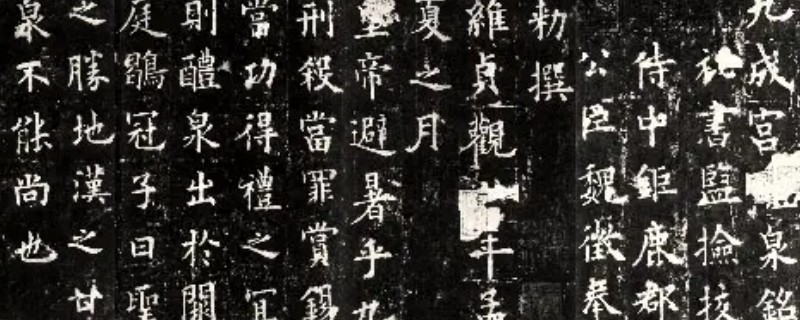 九成宫泉銘
祕書監撿挍
侍中鉅鹿郡
公臣魏徵奉
勑撰
維貞觀年孟
夏之月
皇帝避暑乎九
刑殺當罪賞錫
當功得禮之冝
則醴泉出於闕
庭鶡冠子曰聖
之勝地漢之甘
泉不能尚也